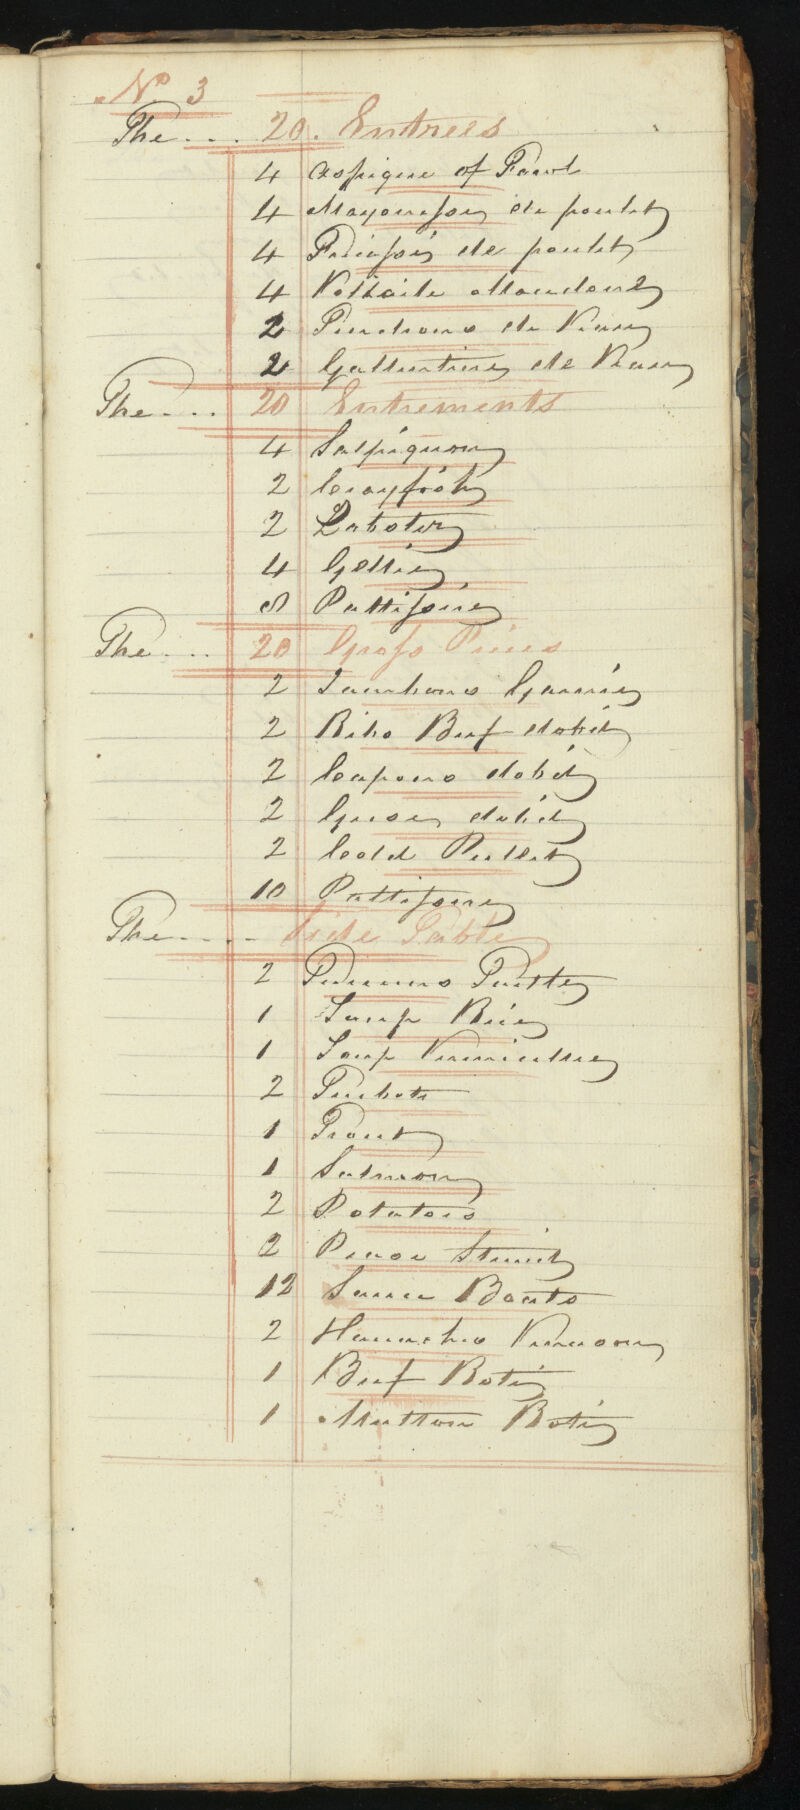 No 3
The.... 20. Entrees
4 Aspique of Fowl
4 Mayonesse de poulet
4 Fricassé de poulet
4 Vollaile
2 de Veau
2 Gallintine de Veau
The.... 20 Entrements
4 Salpiquon
2 Crayfish
2 Lobster
4 Gellie
8 Pattissire
The.... 20 Gross Pieces
2 Jambons Garnié
2 Ribs Beef dobéd
2 Capons dobéd
2 Geese dobéd
2 Cold Pullet
10 Pattissire
The..... Side Table
2 Tureens Turtle
1 Soup Rice
1 Soup Vermicellie
2 Turbots
1 Trout
1 Salmon
2 Potatoes
2 Pease Stewed
12 Sauce Boats
2 Haunches Venason
1 Beef Roti
1 Mutton Roti